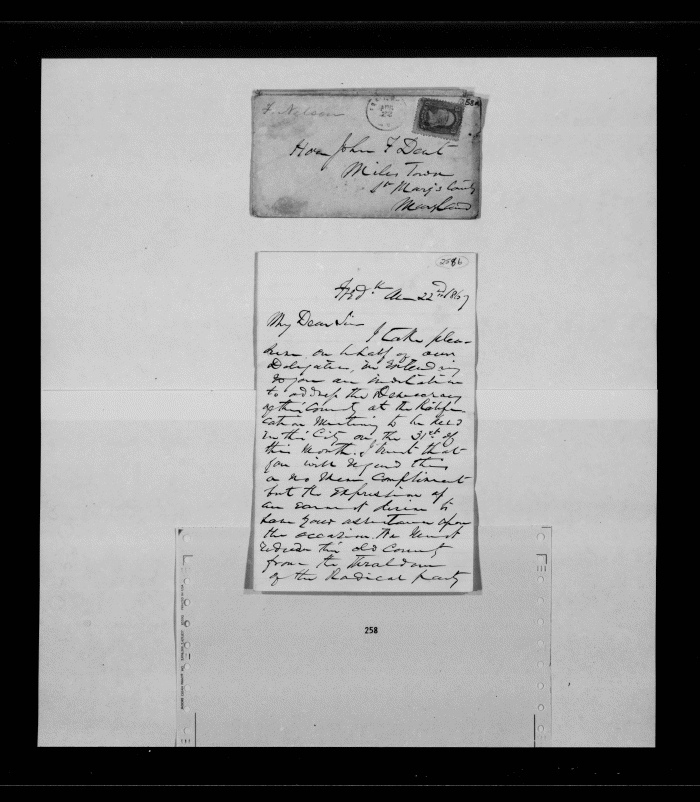 F. Nelson
58A
Hon John F Dent
Miles Town
St Mary's County
Maryland
258b
Fredk Au 22nd 1867
My Dear Sir
I take plea-
sure on behalf of our
Delegation, in extending
to you an invitation
to address the Democracy
of this County at the Ratifi
cation Meeting to be held
in this City on the 31st of
this Month. I trust that
you will regard this
as no mere compliment
but the expression of
an earnest desire to
have your assistance upon
the occasion. We must
redeem this old County
from the thraldom
of the Radical party
258